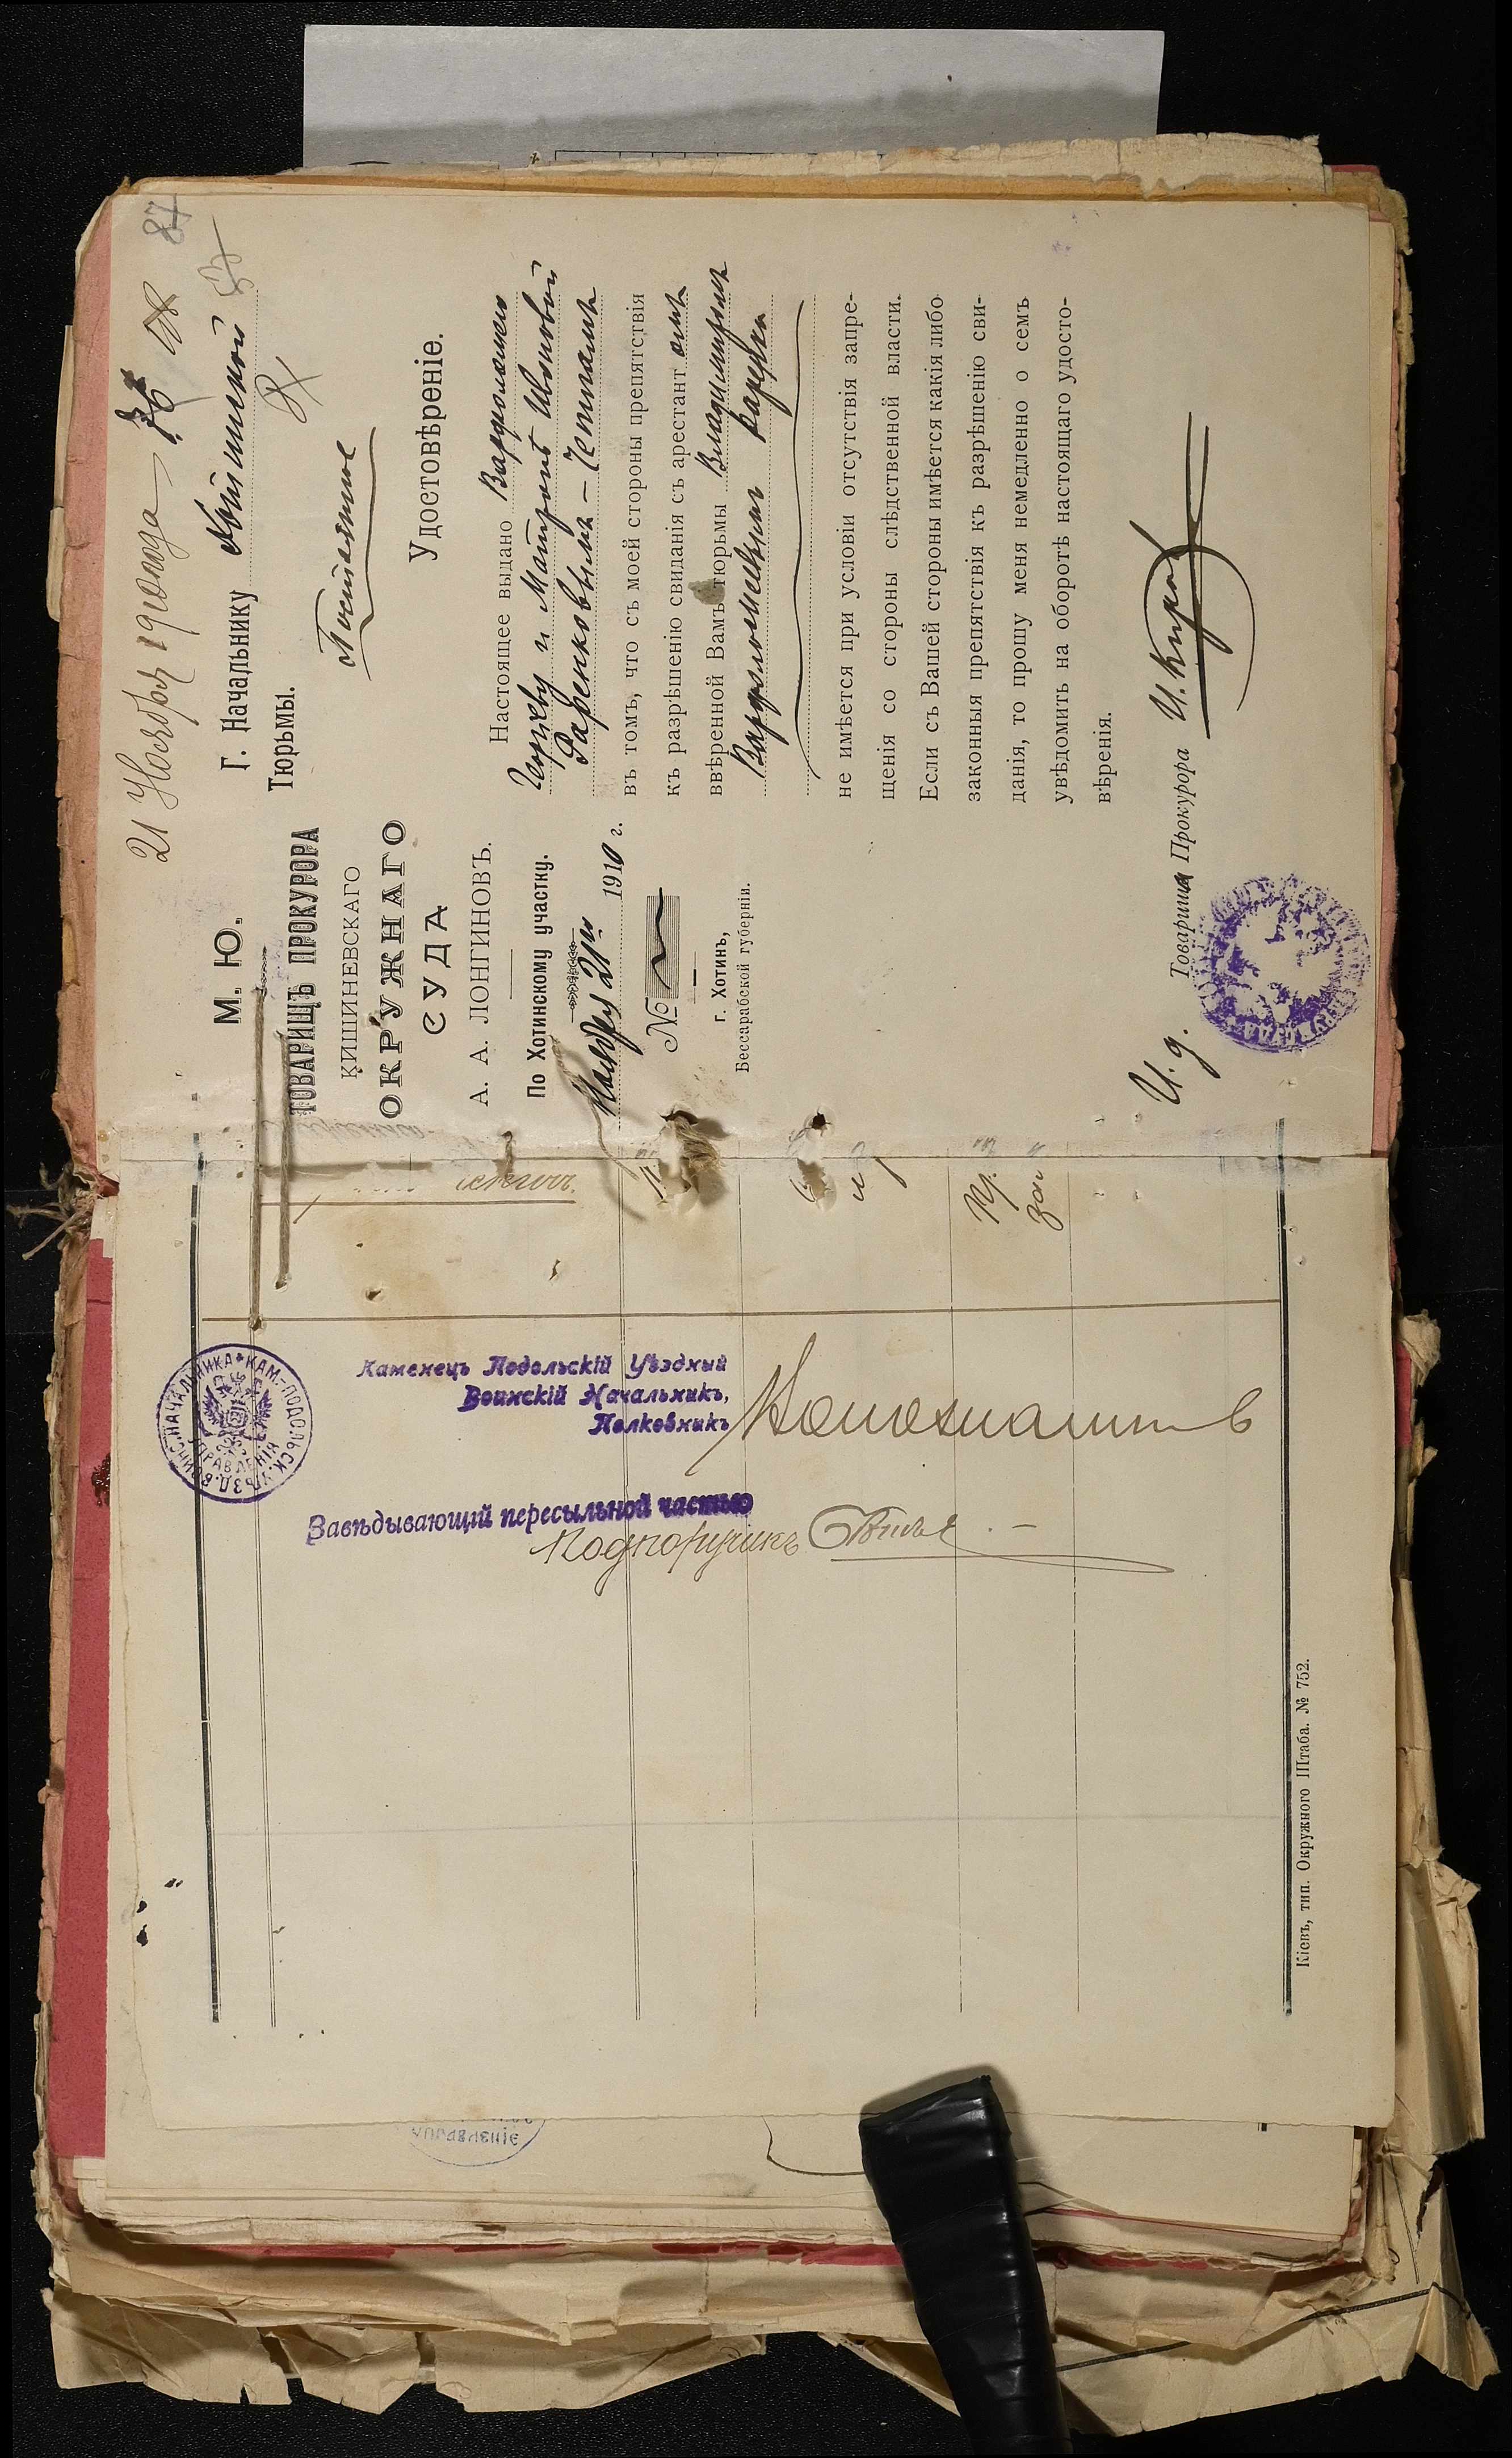 21 Ноября 1910 года
87
М. Ю.
ТОВАРИЩЪ ПРОКУРОРА
КИШИНЕВСКАГО
ОКРУЖНАГО
СУДА
А. А. ЛОНГИНОВЪ.
По Хотинскому участку.
Ноября 21 дня 1910 г.
№
г. Хотинъ,
Бессарабской губерніи.
Г. Начальнику Хотинской
Тюрьмы.
Постоянное
Удостовѣреніе.
Настоящее выдано Варфоломею
Георгіеву и Матронѣ Ивановой
Фаренковымъ — Четаламъ
въ томъ, что съ моей стороны препятствія
къ разрѣшенію свиданія съ арестант омъ
ввѣренной Вамъ тюрьмы Владимиромъ
Варфоломеевымъ
не имѣется при условіи отсутствія запре-
щенія со стороны слѣдственной власти.
Если съ Вашей стороны имѣется какія либо
законныя препятствія къ разрѣшенію сви-
данія, то прошу меня немедленно о семъ
увѣдомить на оборотѣ настоящаго удосто-
вѣренія.
И. д. Товарища Прокурора
Каменецъ Подольскій Уѣздный
Воинскій Начальникъ,
Полковникъ
Завѣдывающій пересыльной частью
Подпоручикъ
КАМ.-ПОДОЛЬСК. УѢЗД. ВОИНС. НАЧАЛЬНИКА
УПРАВЛЕНІЯ
Кіевъ, тип. Окружного Штаба. № 752.